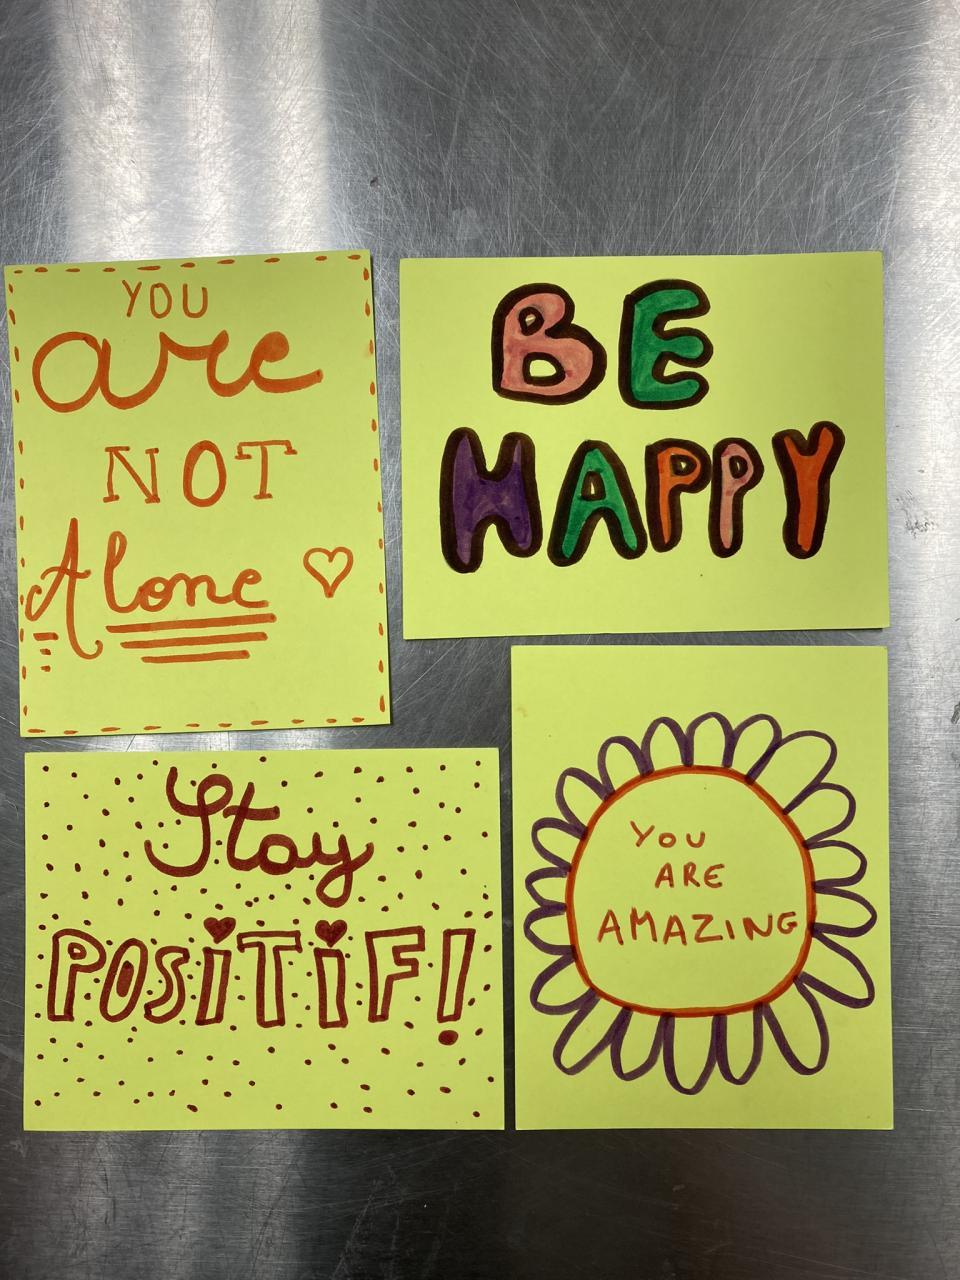 YOU
are
NOT
Alone
BE
HAPPY
Stay
POSiTiF!
YOU
ARE
AMAZING